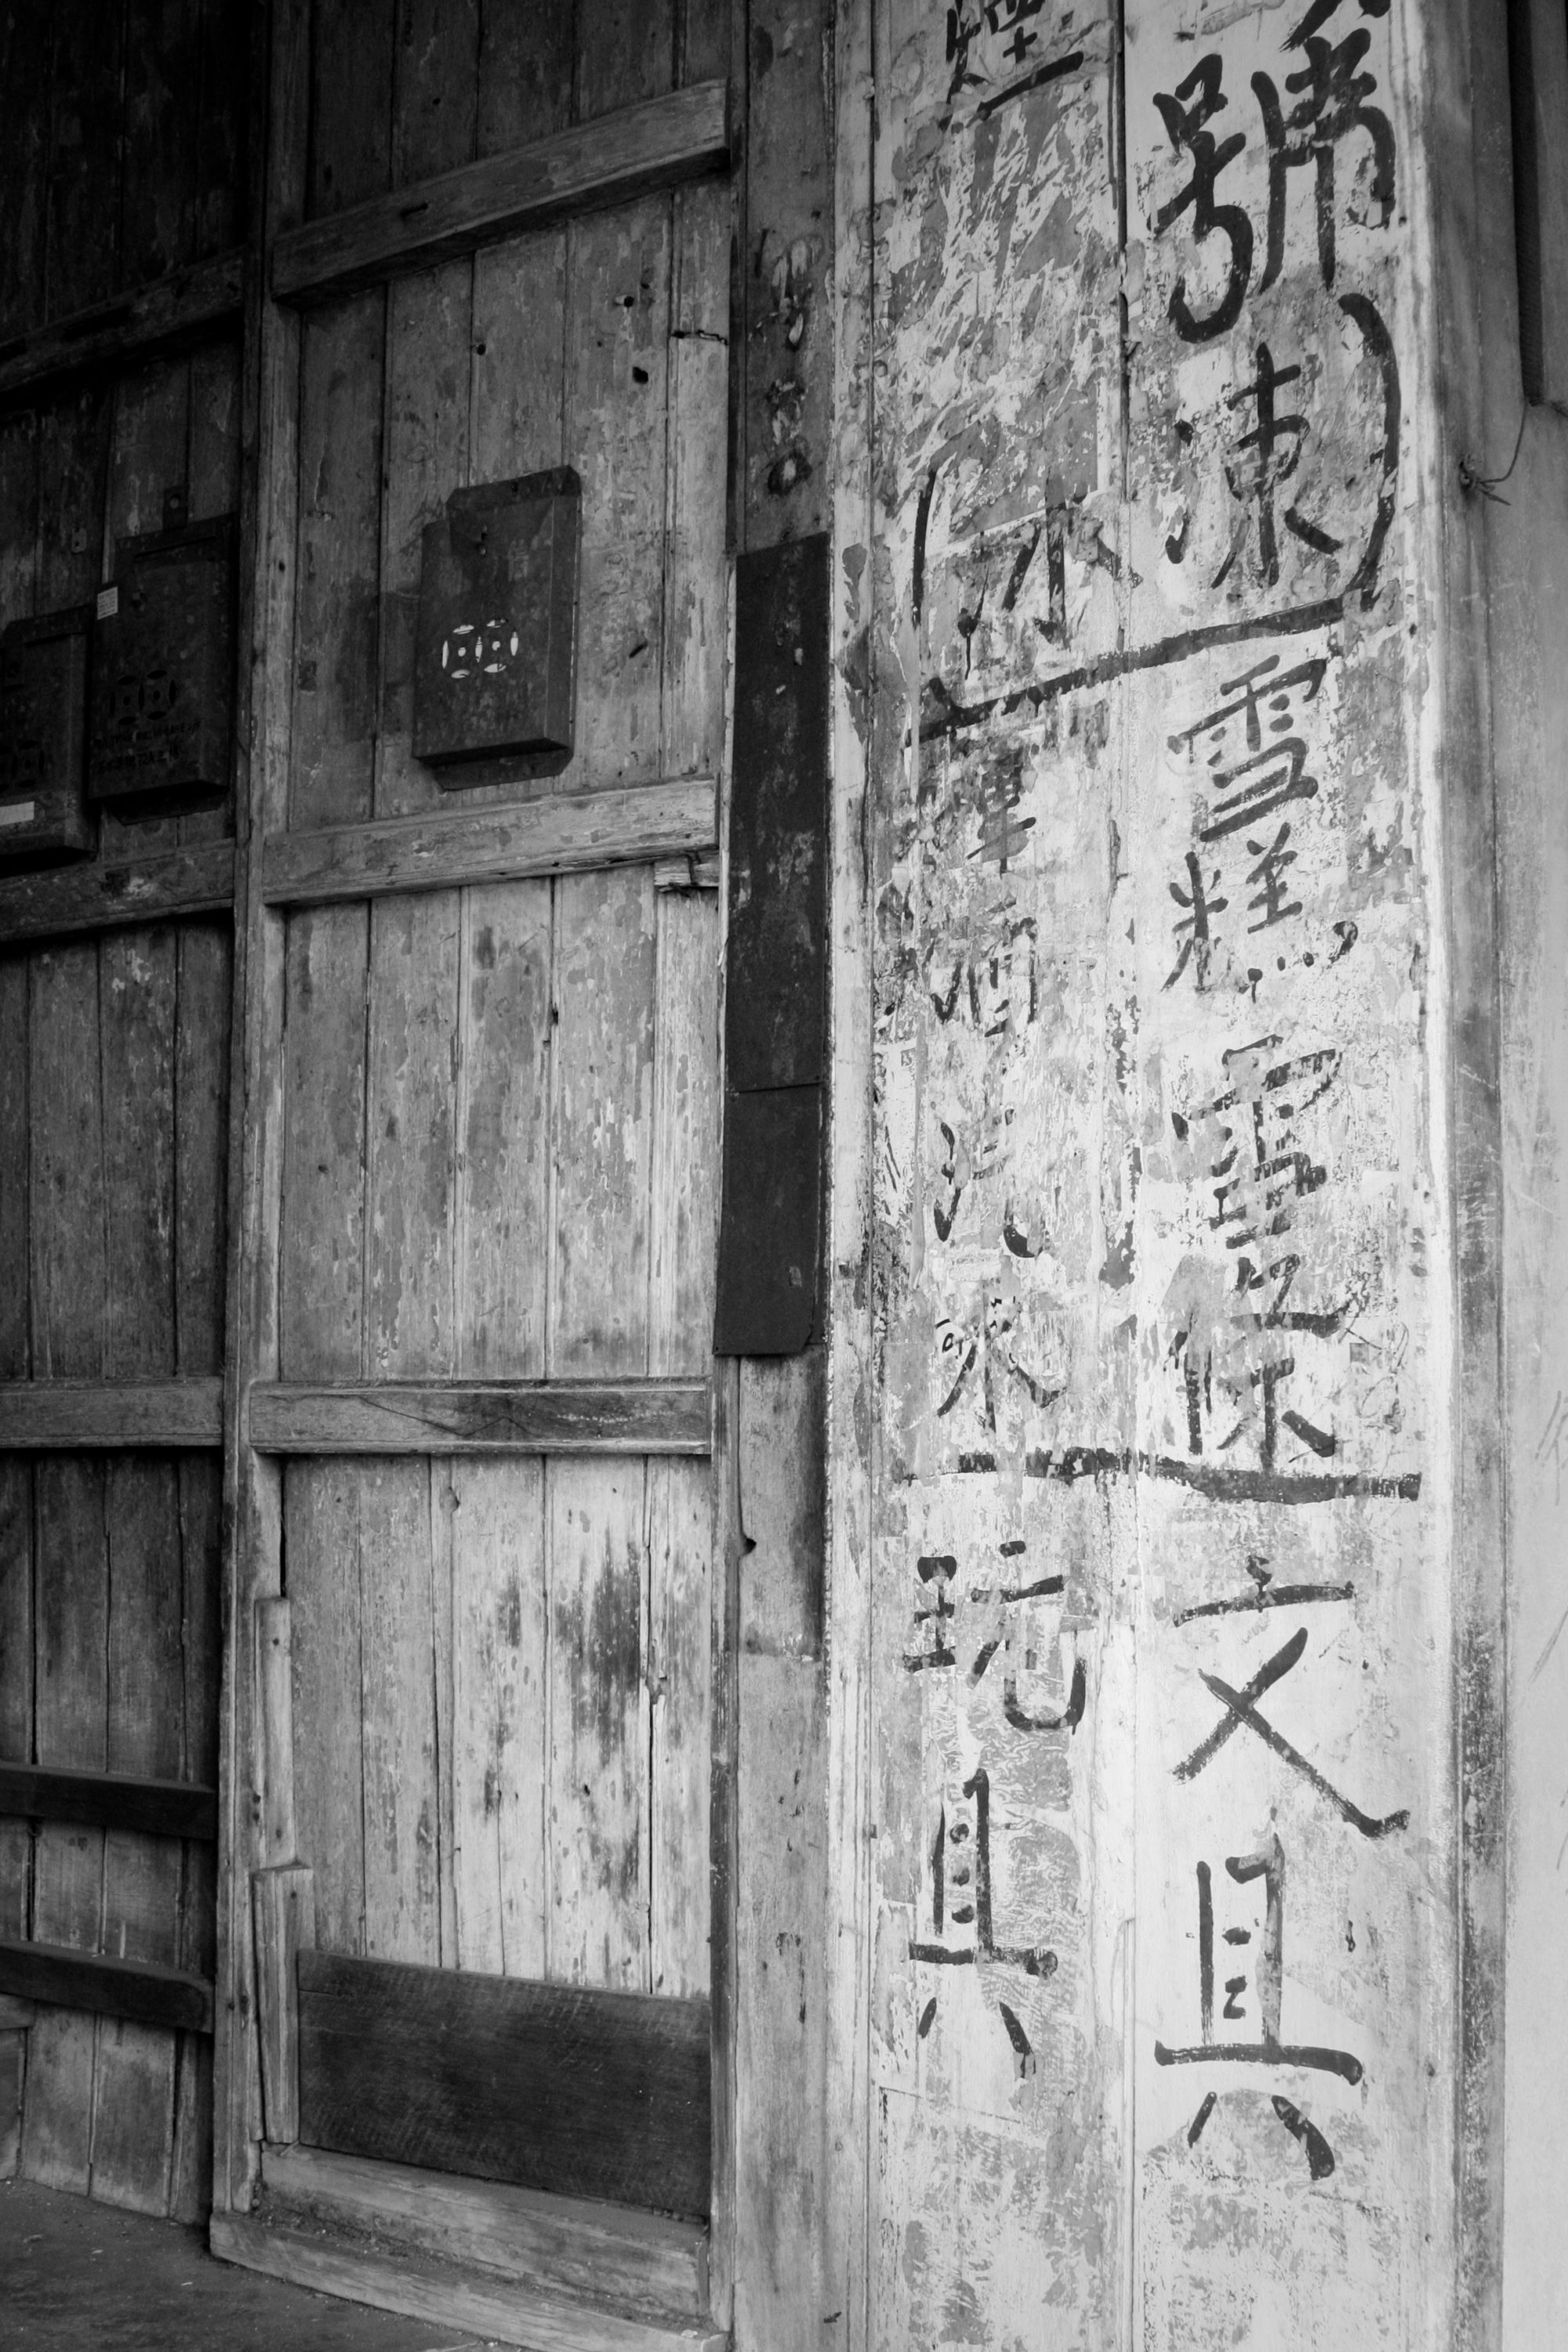 號
煙
(冰凍)
雪糕,雪條
啤酒汽水
文具
玩具